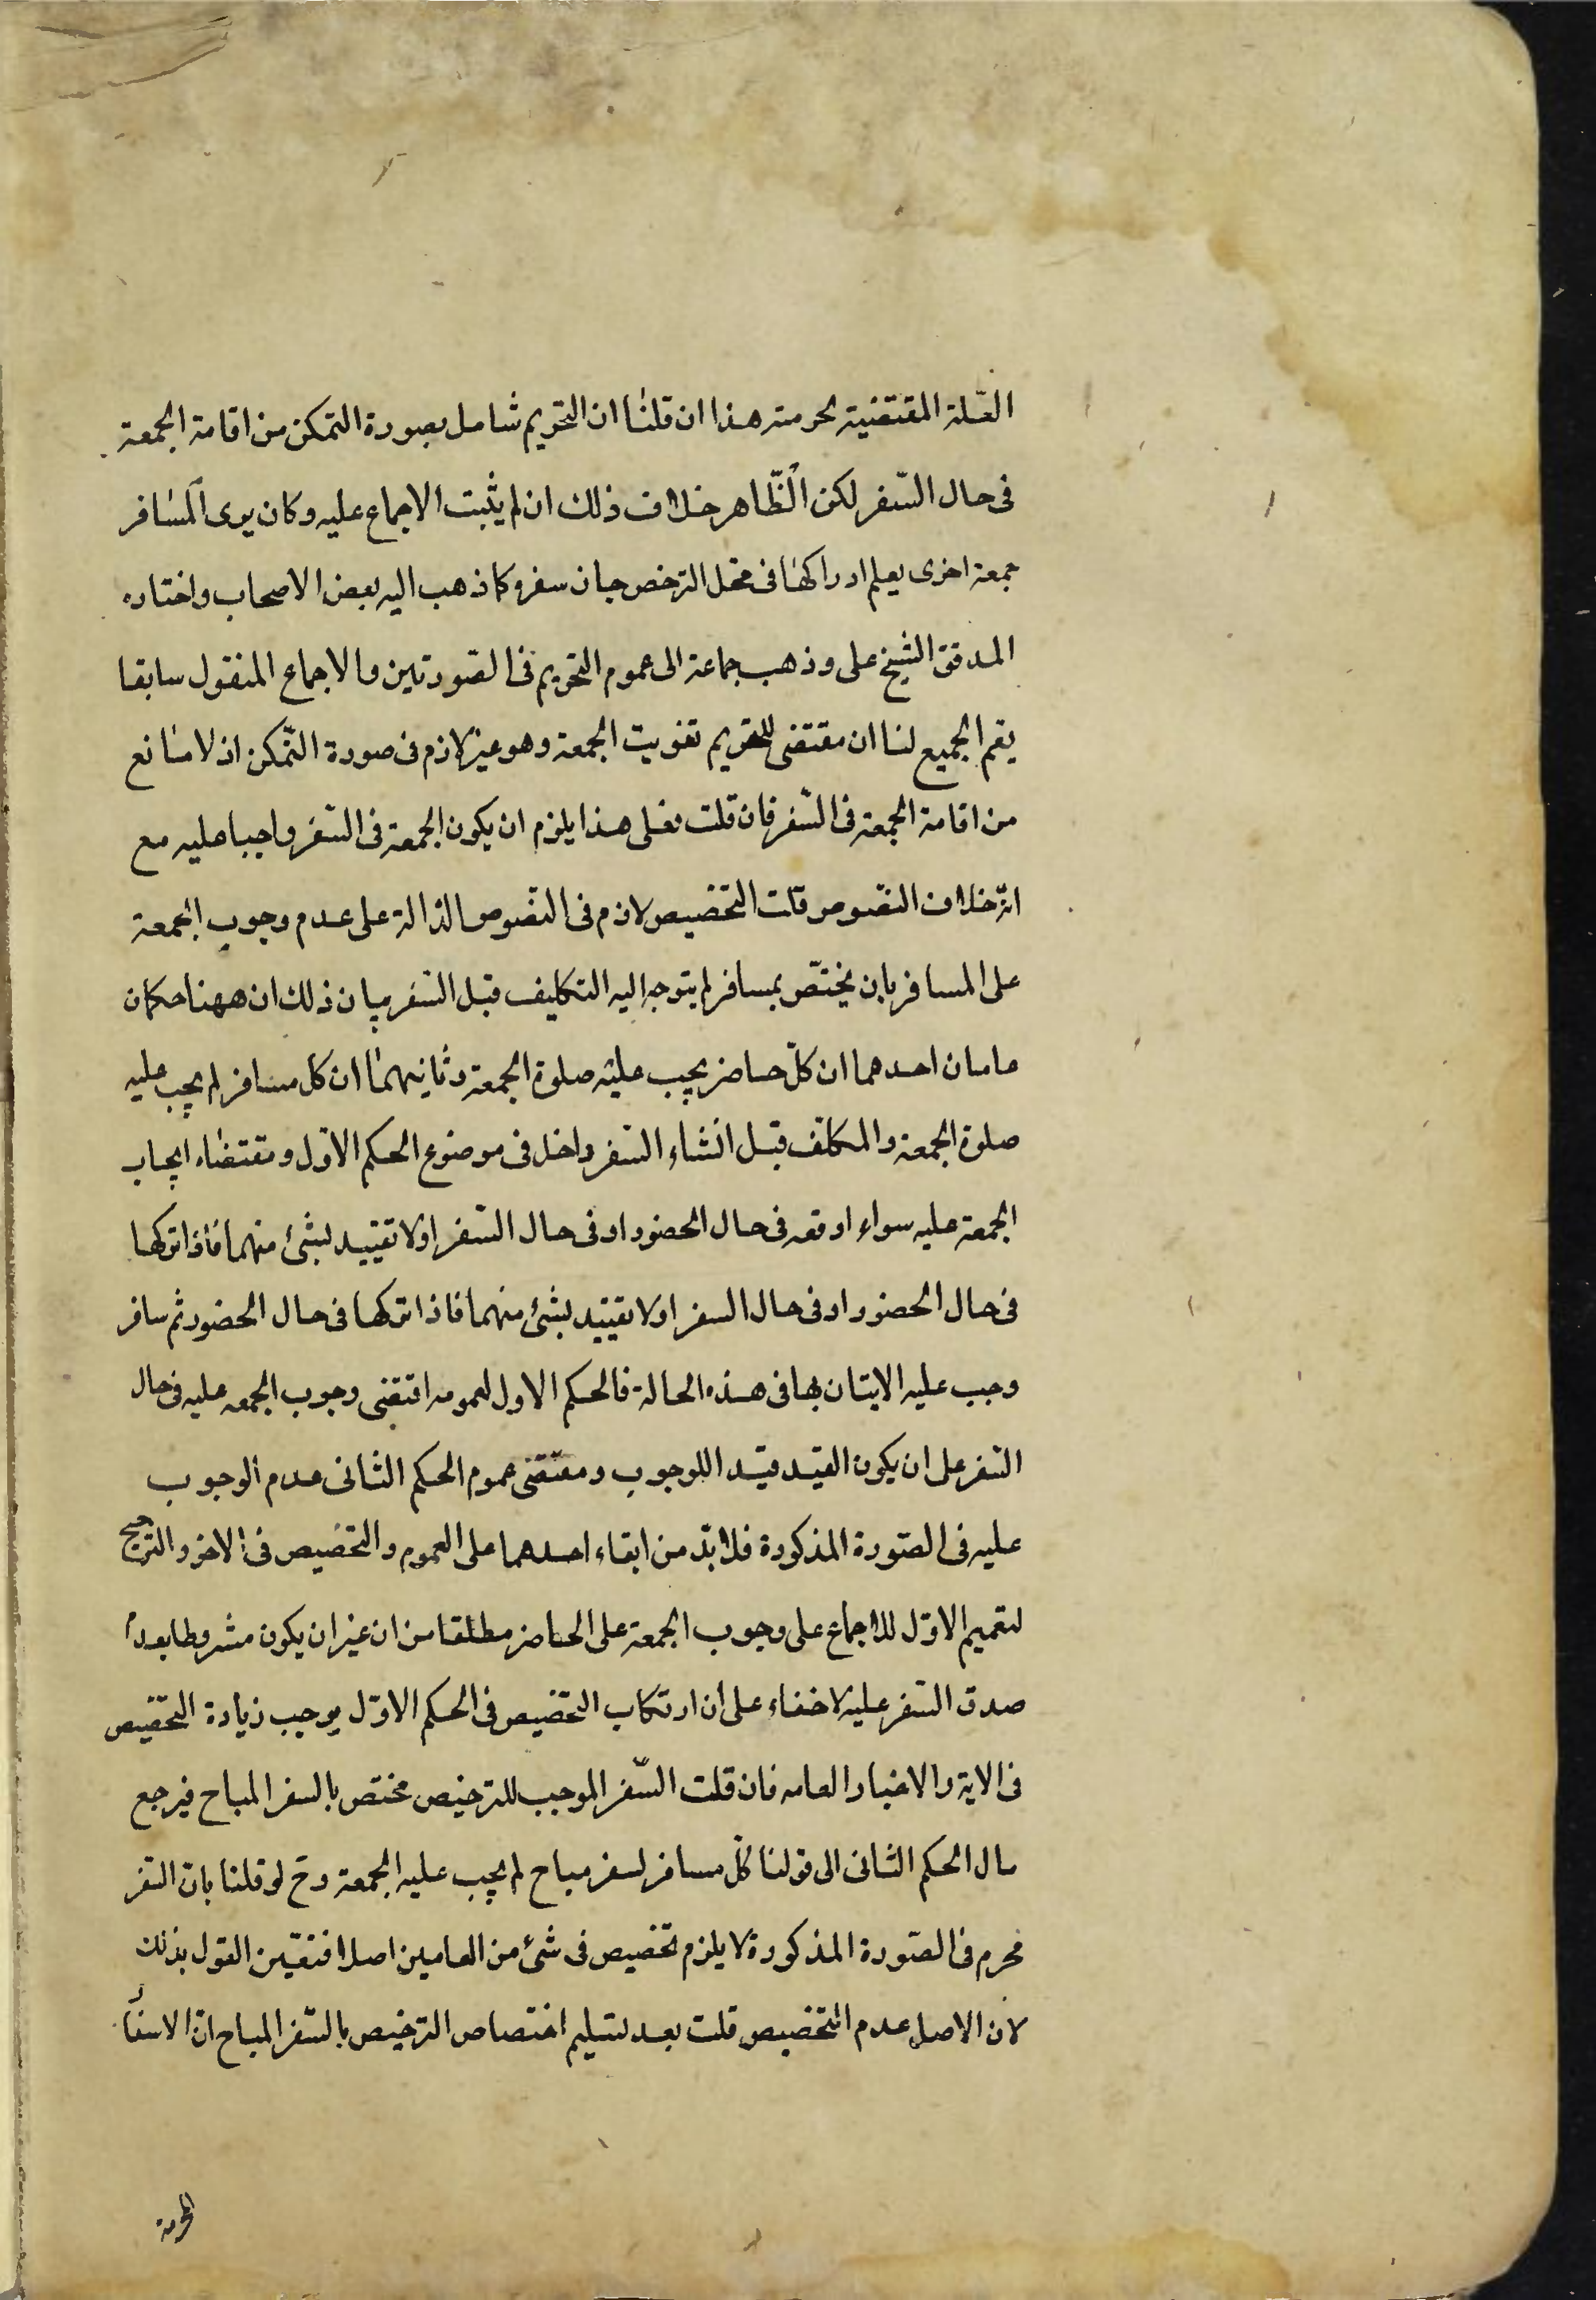 العلة المقتضية لحرمته هذا ان قلنا ان التحريم شامل بصورة التمكن من اقامة الجمعة
فى حال السفر لكن الظاهر خلاف ذلك ان لم يثبت الاجماع عليه وكان يرى المسافر
جمعة اخرى يعلم ادراكها فى محل الترخص جاز سفره كما ذهب اليه بعض الاصحاب واختاره
المدقق الشيخ على وذهب جماعة الى عموم التحريم فى الصورتين والاجماع المنقول سابقا
يعم الجميع لنا ان مقتضى للتحريم تفويت الجمعة وهو غير لازم فى صورة التمكن اذ لا مانع
من اقامة الجمعة فى السفر فان قلت فعلى هذا يلزم ان يكون الجمعة فى السفر واجبا عليه مع
انه خلاف النصوص قلت التخصيص لازم فى النصوص الدالة على عدم وجوب الجمعة
على المسافر بان يختص بمسافر لم يتوجه اليه التكليف قبل السفر بيان ذلك ان ههنا حكمان
عامان احدهما ان كل حاضر يجب عليه صلوة الجمعة وثانيهما ان كل مسافر لم يجب عليه
صلوة الجمعة والمكلف قبل انشاء السفر داخل فى موضوع الحكم الاول ومقتضاه ايجاب
الجمعة عليه سواء اوقعه فى حال الحضور او فى حال السفر اولا تقييد بشئ منهما فاذا تركها
فى حال الحضور او فى حال السفر اولا تقييد بشئ منهما فاذا تركها فى حال الحضور ثم سافر
وجب عليه الايتان بها فى هذه الحالة فالحكم الاول لعمومه اقتضى وجوب الجمعه عليه فى حال
السفر على ان يكون القيد قيدا للوجوب ومقتضى عموم الحكم الثانى عدم الوجوب
عليه فى الصورة المذكورة فلا بد من ابقاء احدهما على العموم والتخصيص فى الاخر والترجيح
لتعميم الاول للاجماع على وجوب الجمعة على الحاضر مطلقا من ان غير ان يكون مشروطا بعدم
صدق السفر عليه لا خفاء على ان ارتكاب التخصيص فى الحكم الاول يوجب زيادة التخصيص
فى الاية والاخبار العامه فان قلت السفر الموجب للترخيص مختص بالسفر المباح فيرجع
مال الحكم الثانى الى قولنا كل مسافر لسفر مباح لم يجب عليه الجمعة وح لو قلنا بان السفر
محرم فى الصورة المذكورة لا يلزم تخصيص فى شئ من العامين اصلا فتعين القول بذلك
لان الاصل عدم التخصيص قلت بعد تسليم اختصاص الترخيص بالسفر المباح ان الاسفار